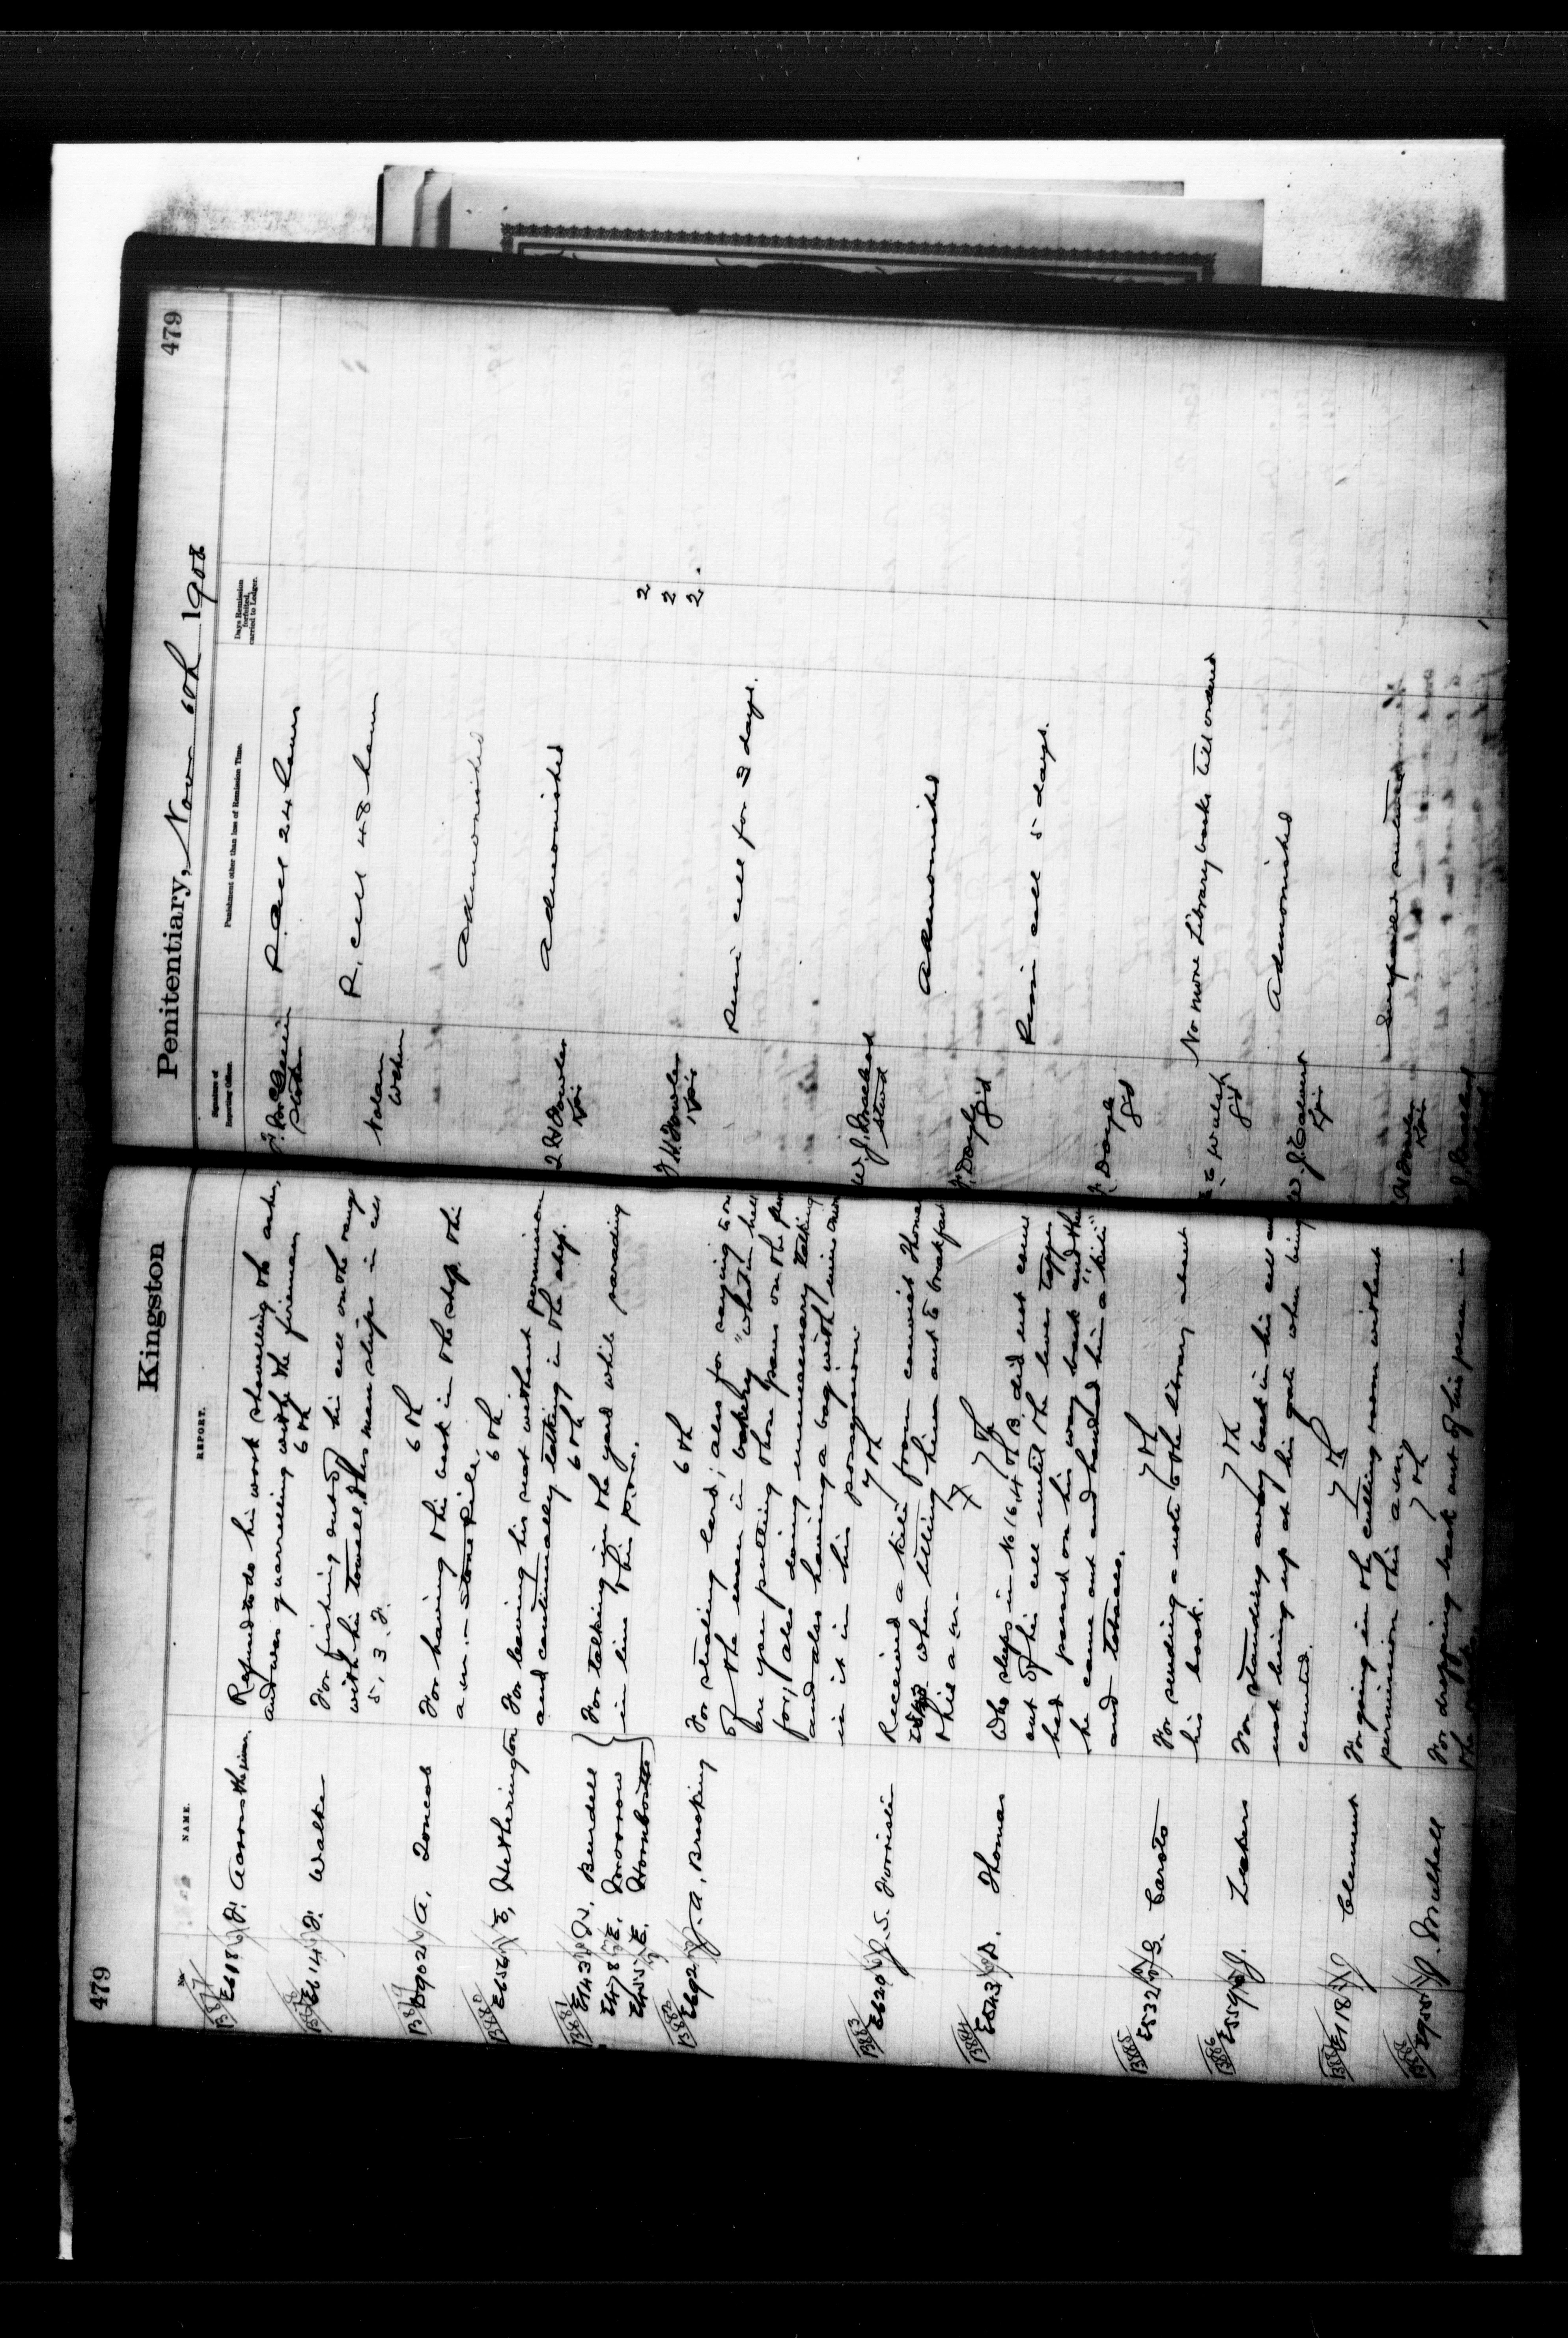 479
Kingston
Penitentiary, Nov. 6th 1908
479
No.
NAME.
REPORT.
Signature of Reporting Officer.
Punishment other than loss of Remission Time.
Days Remission forfeited, carried to Ledger.
13877
E618 F. Aaronstheim
Refused to do his work shovelling the ashes
and was quarrelling with the fireman
6th
Stoker
R. Cell 24 hours
13878
E614 F. Walker
For fishing out of his cell on the range
with his towell, this man sleeps in cell
5, 3, F.
Nolan
R. Cell 48 hours
13879
D902 A. Toncas
6th
For having this book in the shop this
a.m. - Stone Pile.
Admonished
13880
E656 E. Hetherington
6th
For leaving his seat without permission
and continually talking in the shop.
J H Fowler
Admonished
13881
E143 W. Burdell
E478 E. Morrow
E455 E. Hornbottle
6th
For talking in the yard while parading
in line this p.m.
J. H. Fowler
2
2
2
13882
E692 J. A. Brocking
6th
For stealing lard; also for saying to one
of the men in bakery "what in hell
are you putting those pans on the floor
for," also doing unnecessary talking
and also having a bag with
in it in his possession
W. J.
Stwd
Remi cell for 3 days.
13883
E620 J. S. Forrister
7th
Received a kite from convict Thomas
E543 when letting him out to breakfast
this a.m.
J. Doyle
Gd
Admonished
13884
E543 D. Thomas
7th
Who sleeps in No 16, 4th B. did not come
out of his cell until the lines upper
had passed on his way back and then
he came out and handed him a "kite"
and tobacco.
J. Doyle
Gd
Remi cell 5 days.
13885
E532 G. Caroto
7th
For sending a note to the library about
his book.
Walsh
Gd
No more Library books till ordered
13886
E559 J. Lickers
7th
For standing away back in his cell and
not being up at his gate when being
counted.
W. J. Calvert
Admonished
13887
E118 J. Clement
7th
For going in the cutting room without
permission this a.m.
H Fowler
Suspended sentence
13888
E955 J. Mulhall
7th
For dropping back out of his place in
the